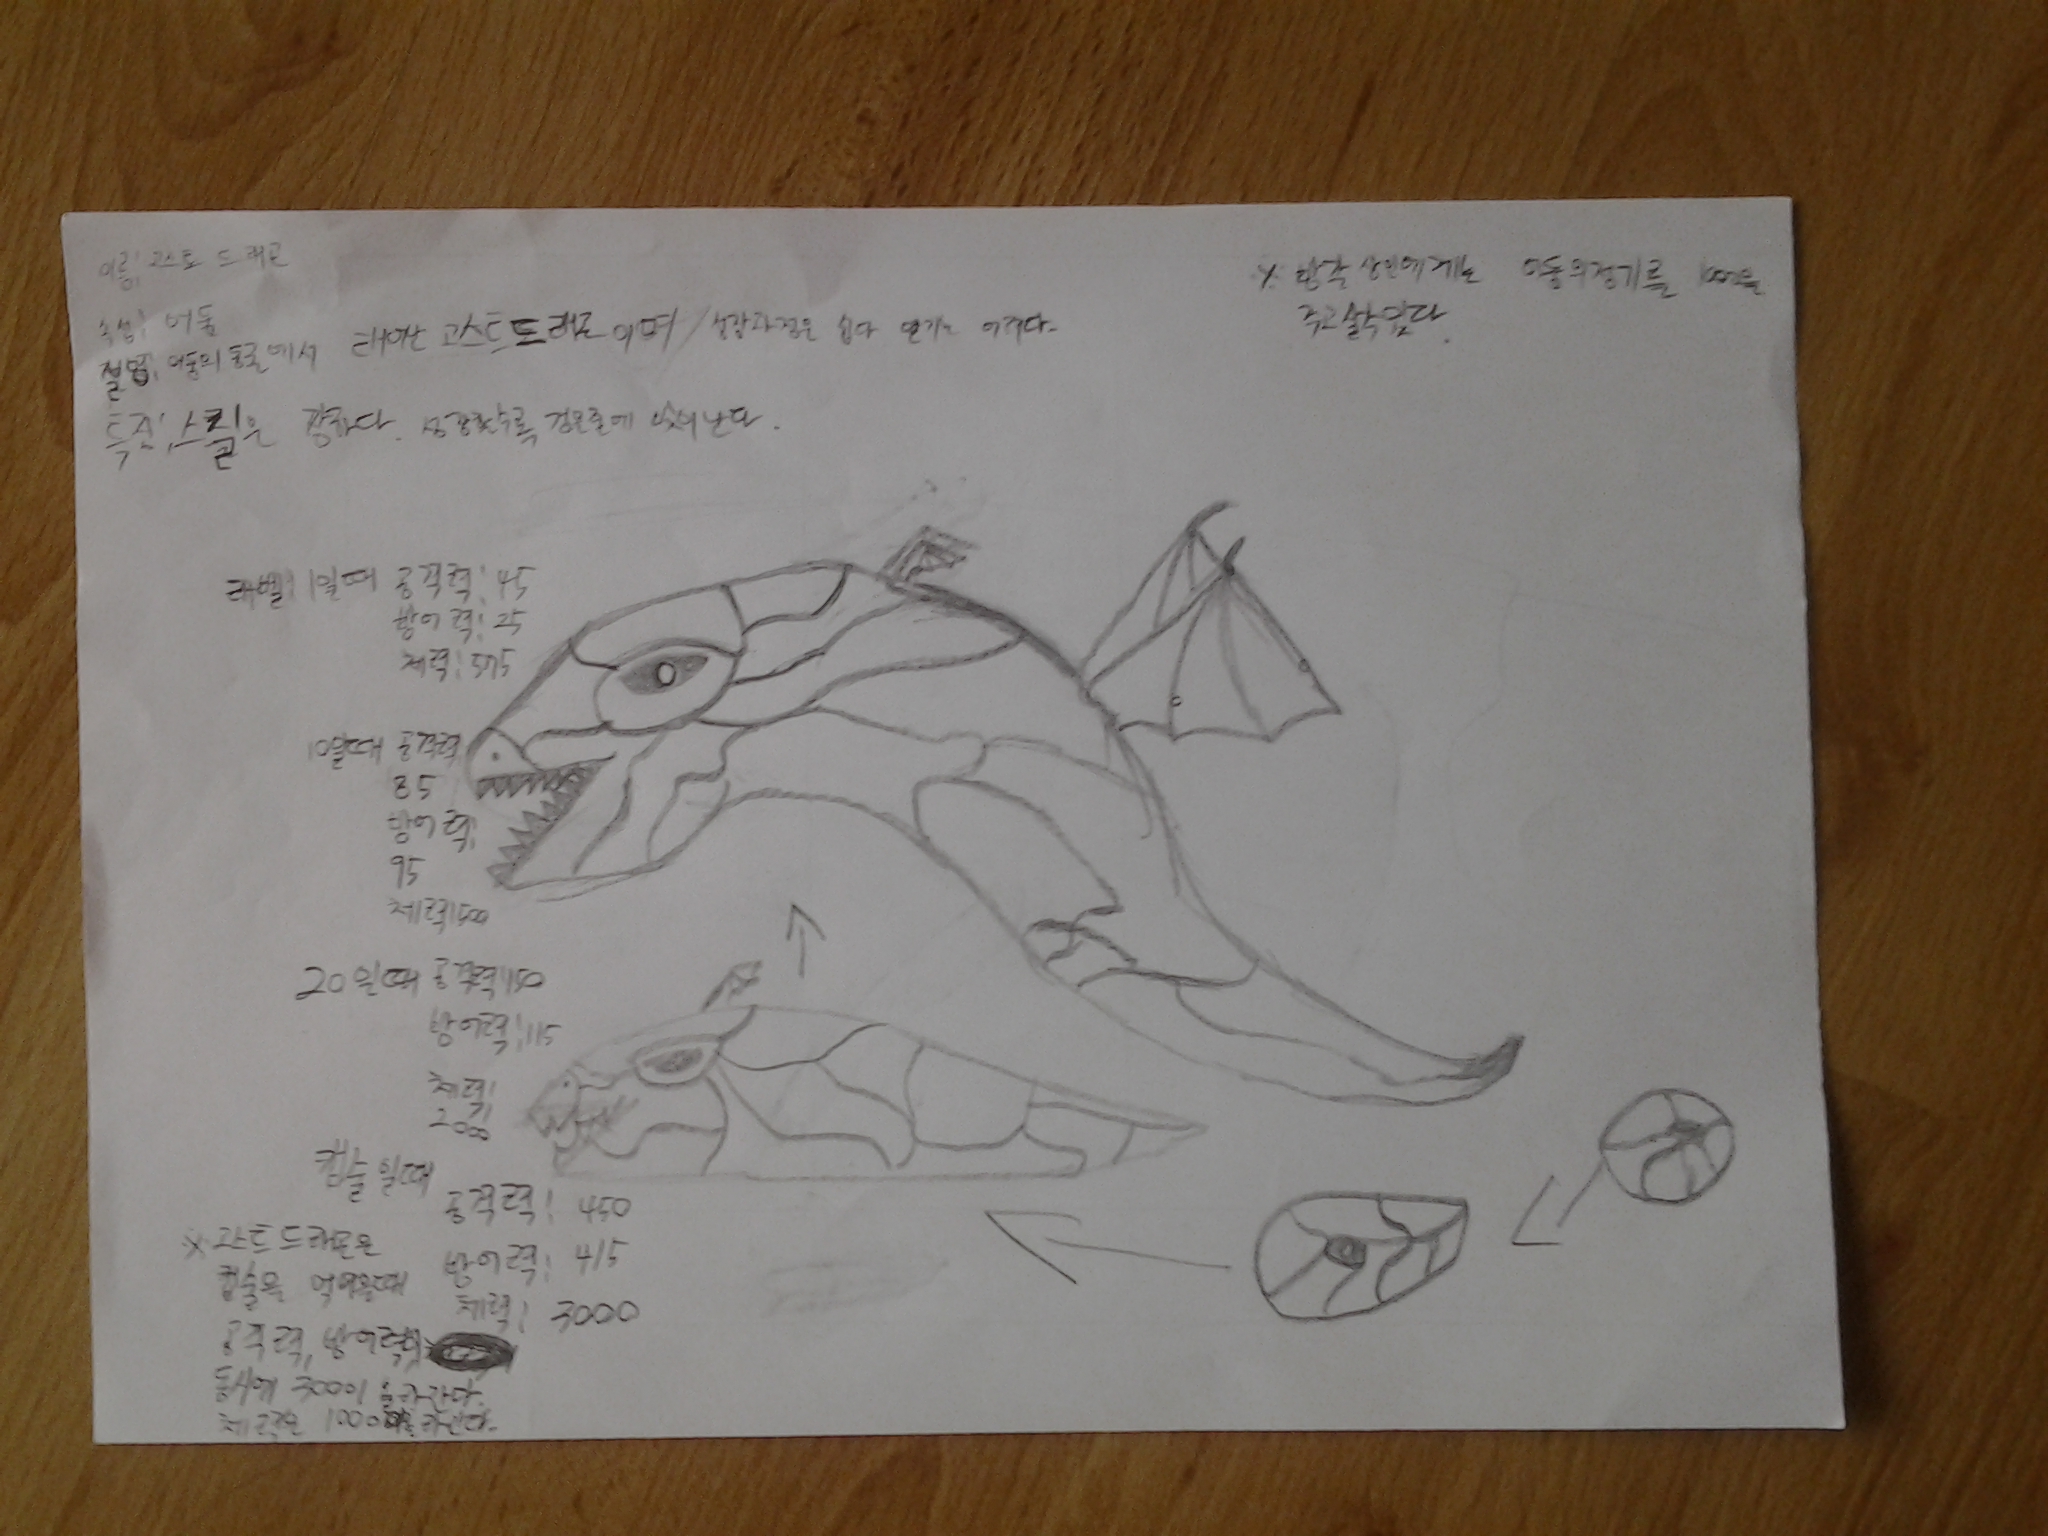 이름: 고스트 드래곤
속성: 어둠
설명: 어둠의 동굴에서 태어난 고스트드래곤이며/성장과정은 쉽다 얻기는 어렵다.
특징: 스킬은 강하다. 성장할수록
※ 상인에게는 어둠의정기를
주고 살수있다.
레벨:1일때 공격력:45
방어력:25
체력:575
10일때 공격력
85
방어력:
95
체력1500
20일때 공격력150
방어력:115
체력:
2000
캡슐일때
공격력: 450
방어력: 415
체력: 3000
※고스트드래곤은
캡슐을 먹었을때
공격력, 방어력이
동시에 300이 올라간다.
체력은 1000이올라간다.